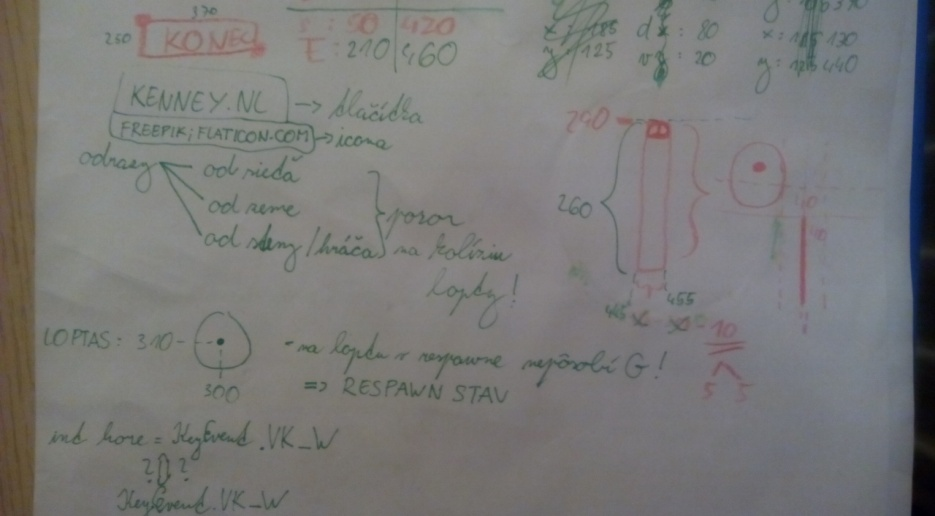 370
250 KONEC
S : 90 420
T : 210 460
x : 185
y : 125
dx : 80
vy : 20
x : 130
y : 440
KENNEY.NL → tlačidla
FREEPIK; FLATICON.COM → icona
odrazy
od siete
od zeme
od steny / hráča
pozor
na kolíziu
lopty!
290
260
445 455
10
5 5
LOPTA S: 310
300
- na loptu v respawne nepôsobí G!
=> RESPAWN STAV
int hore = KeyEvent.VK_W
? ?
KeyEvent.VK_W